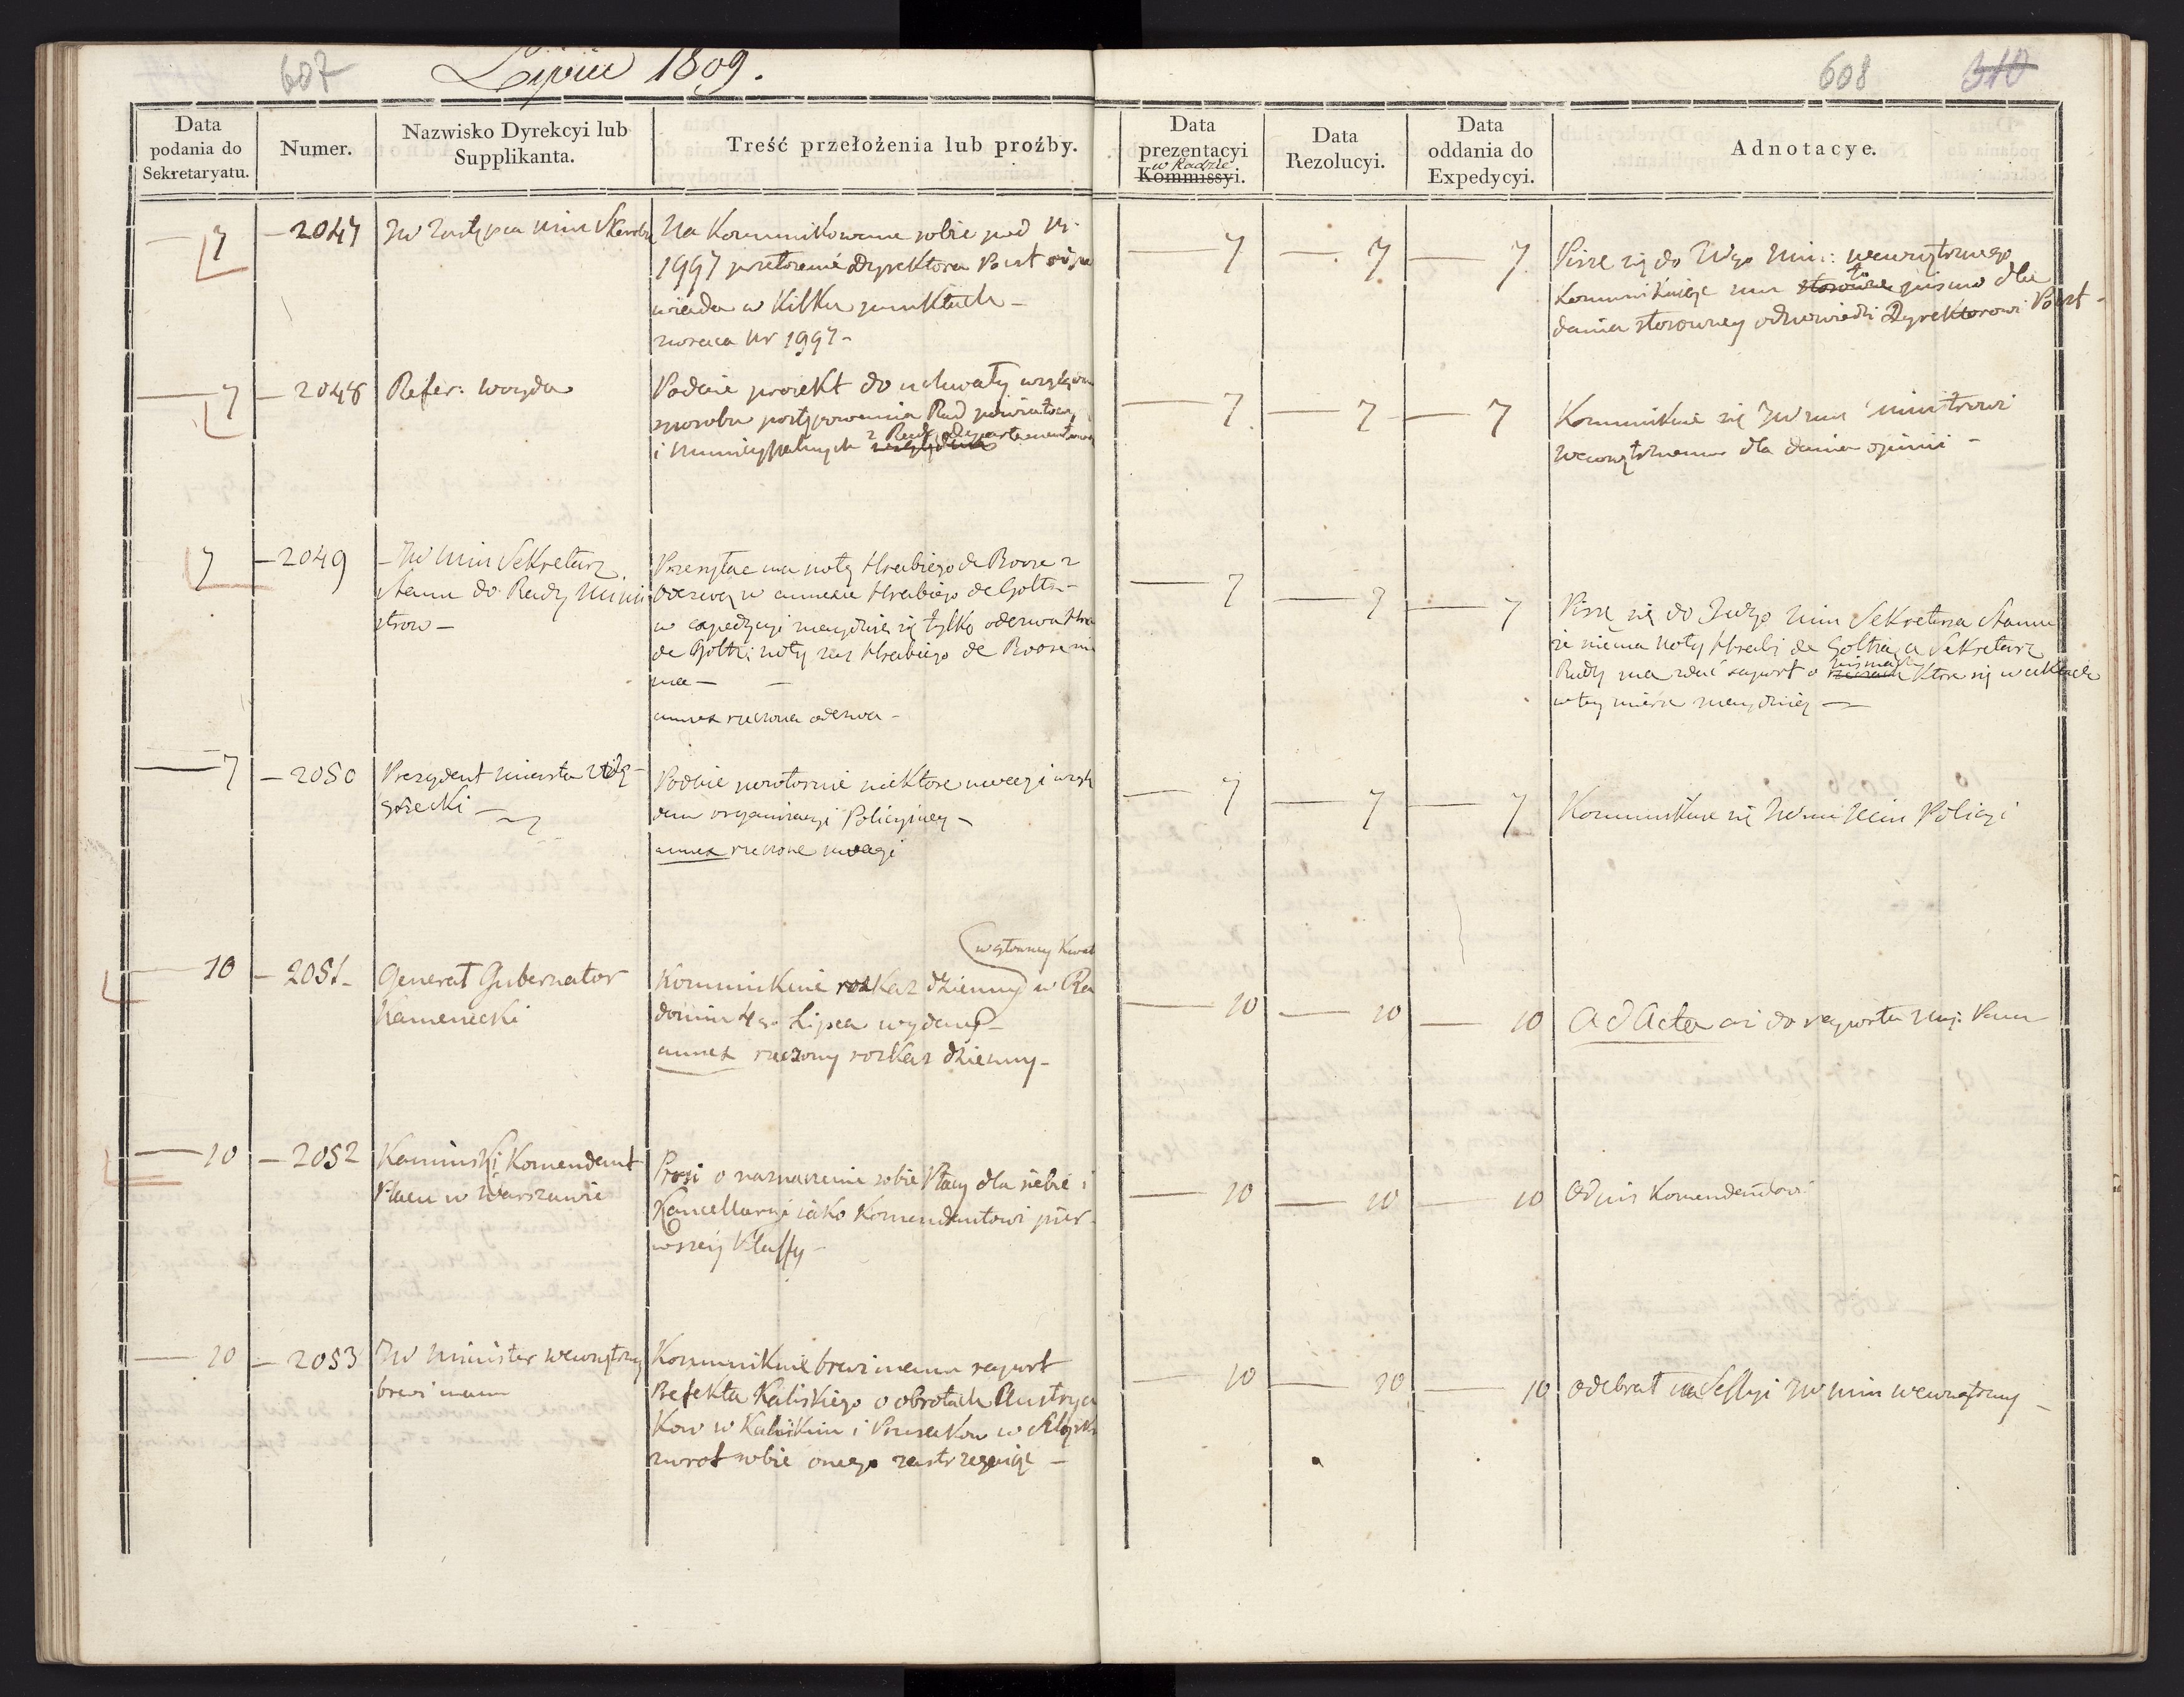 607
Lipiec 1809.
608 310
Data podania do Sekretaryatu.
Numer.
Nazwisko Dyrekcyi lub Supplikanta.
Treść przełożenia lub proźby.
Data prezentacyi w Radzie Kommissyi.
Data Rezolucyi.
Data oddania do Expedycyi.
Adnotacye.
7
2047
JW Zastępca Min Skarbu
Na Kommunikowane sobie pod Nr
1997 przełożenie Dyrektora Poczt
w kilku punktach
zwraca Nr 1997
7
7
7
Pisze się do JWgo Min: wewnętrznego
kommunikując mu stosowne to pismo dla
dania stosowney odpowiedzi Dyrektorowi Poczt
7
2048
Refer: Woyda
Podaie proiekt do uchwały względem
sposobu postępowania Rad powiatow
i Municypalnych z Radą departamentową
7
7
7
Kommunikuie się JWmu Ministrowi
Wewnętrznemu dla dania opinii
7
2049
JW Min Sekretarz
Stanu do Rady Mini
strow
Przesyłać ma notę Hrabiego de Boose z
odezwą w annexie Hrabiego de Goltz
w expedycyi znayduie się tylko odezwa Hra
de Goltz; noty zaś Hrabiego de Boose nie
ma
annex rzeczona odezwa
7
7
7
Pisze się do JWgo Min Sekretarza Stanu
że niema noty Hrabi de Goltza, a Sekretarz
Rady ma zdać raport o pismach które się w aktach
w tey mierze znayduią
7
2050
Prezydent miasta Wę
grzecki
Podaie powtornie niektore uwagi wzglę
dem organizacyi Policyiney
annex rzeczone uwagi
7
7
7
Kommunikuie się JWmu Min Policyi
10
2051
Generał Gubernator
Kamenecki
(w głowney Kwat
Kommunikuie rozkaz dzienny w Ra
domiu 4go Lipca wydany
annex rzeczony rozkaz dzienny
10
10
10
Ad Acta do raportu Nay: Pana
10
2052
Kaminski Komendant
Placu w Warszawie
Prosi o naznaczenie sobie Płacy dla siebie i
Kancellaryi iako Komendantowi pier
wszey Klassy
10
10
10
Odpis Komendantowi
10
2053
JW Minister Wewnętrzny
brevi manu
Kommunikuie brevi manu raport
Prefekta Kaliskiego o obrotach Austrya
kow w Kaliskim i Prusakow w Szląsku
zwrot sobie onego zastrzegaiąc
10
10
10
Odebrał na Sessyi JW Min wewnętrzny